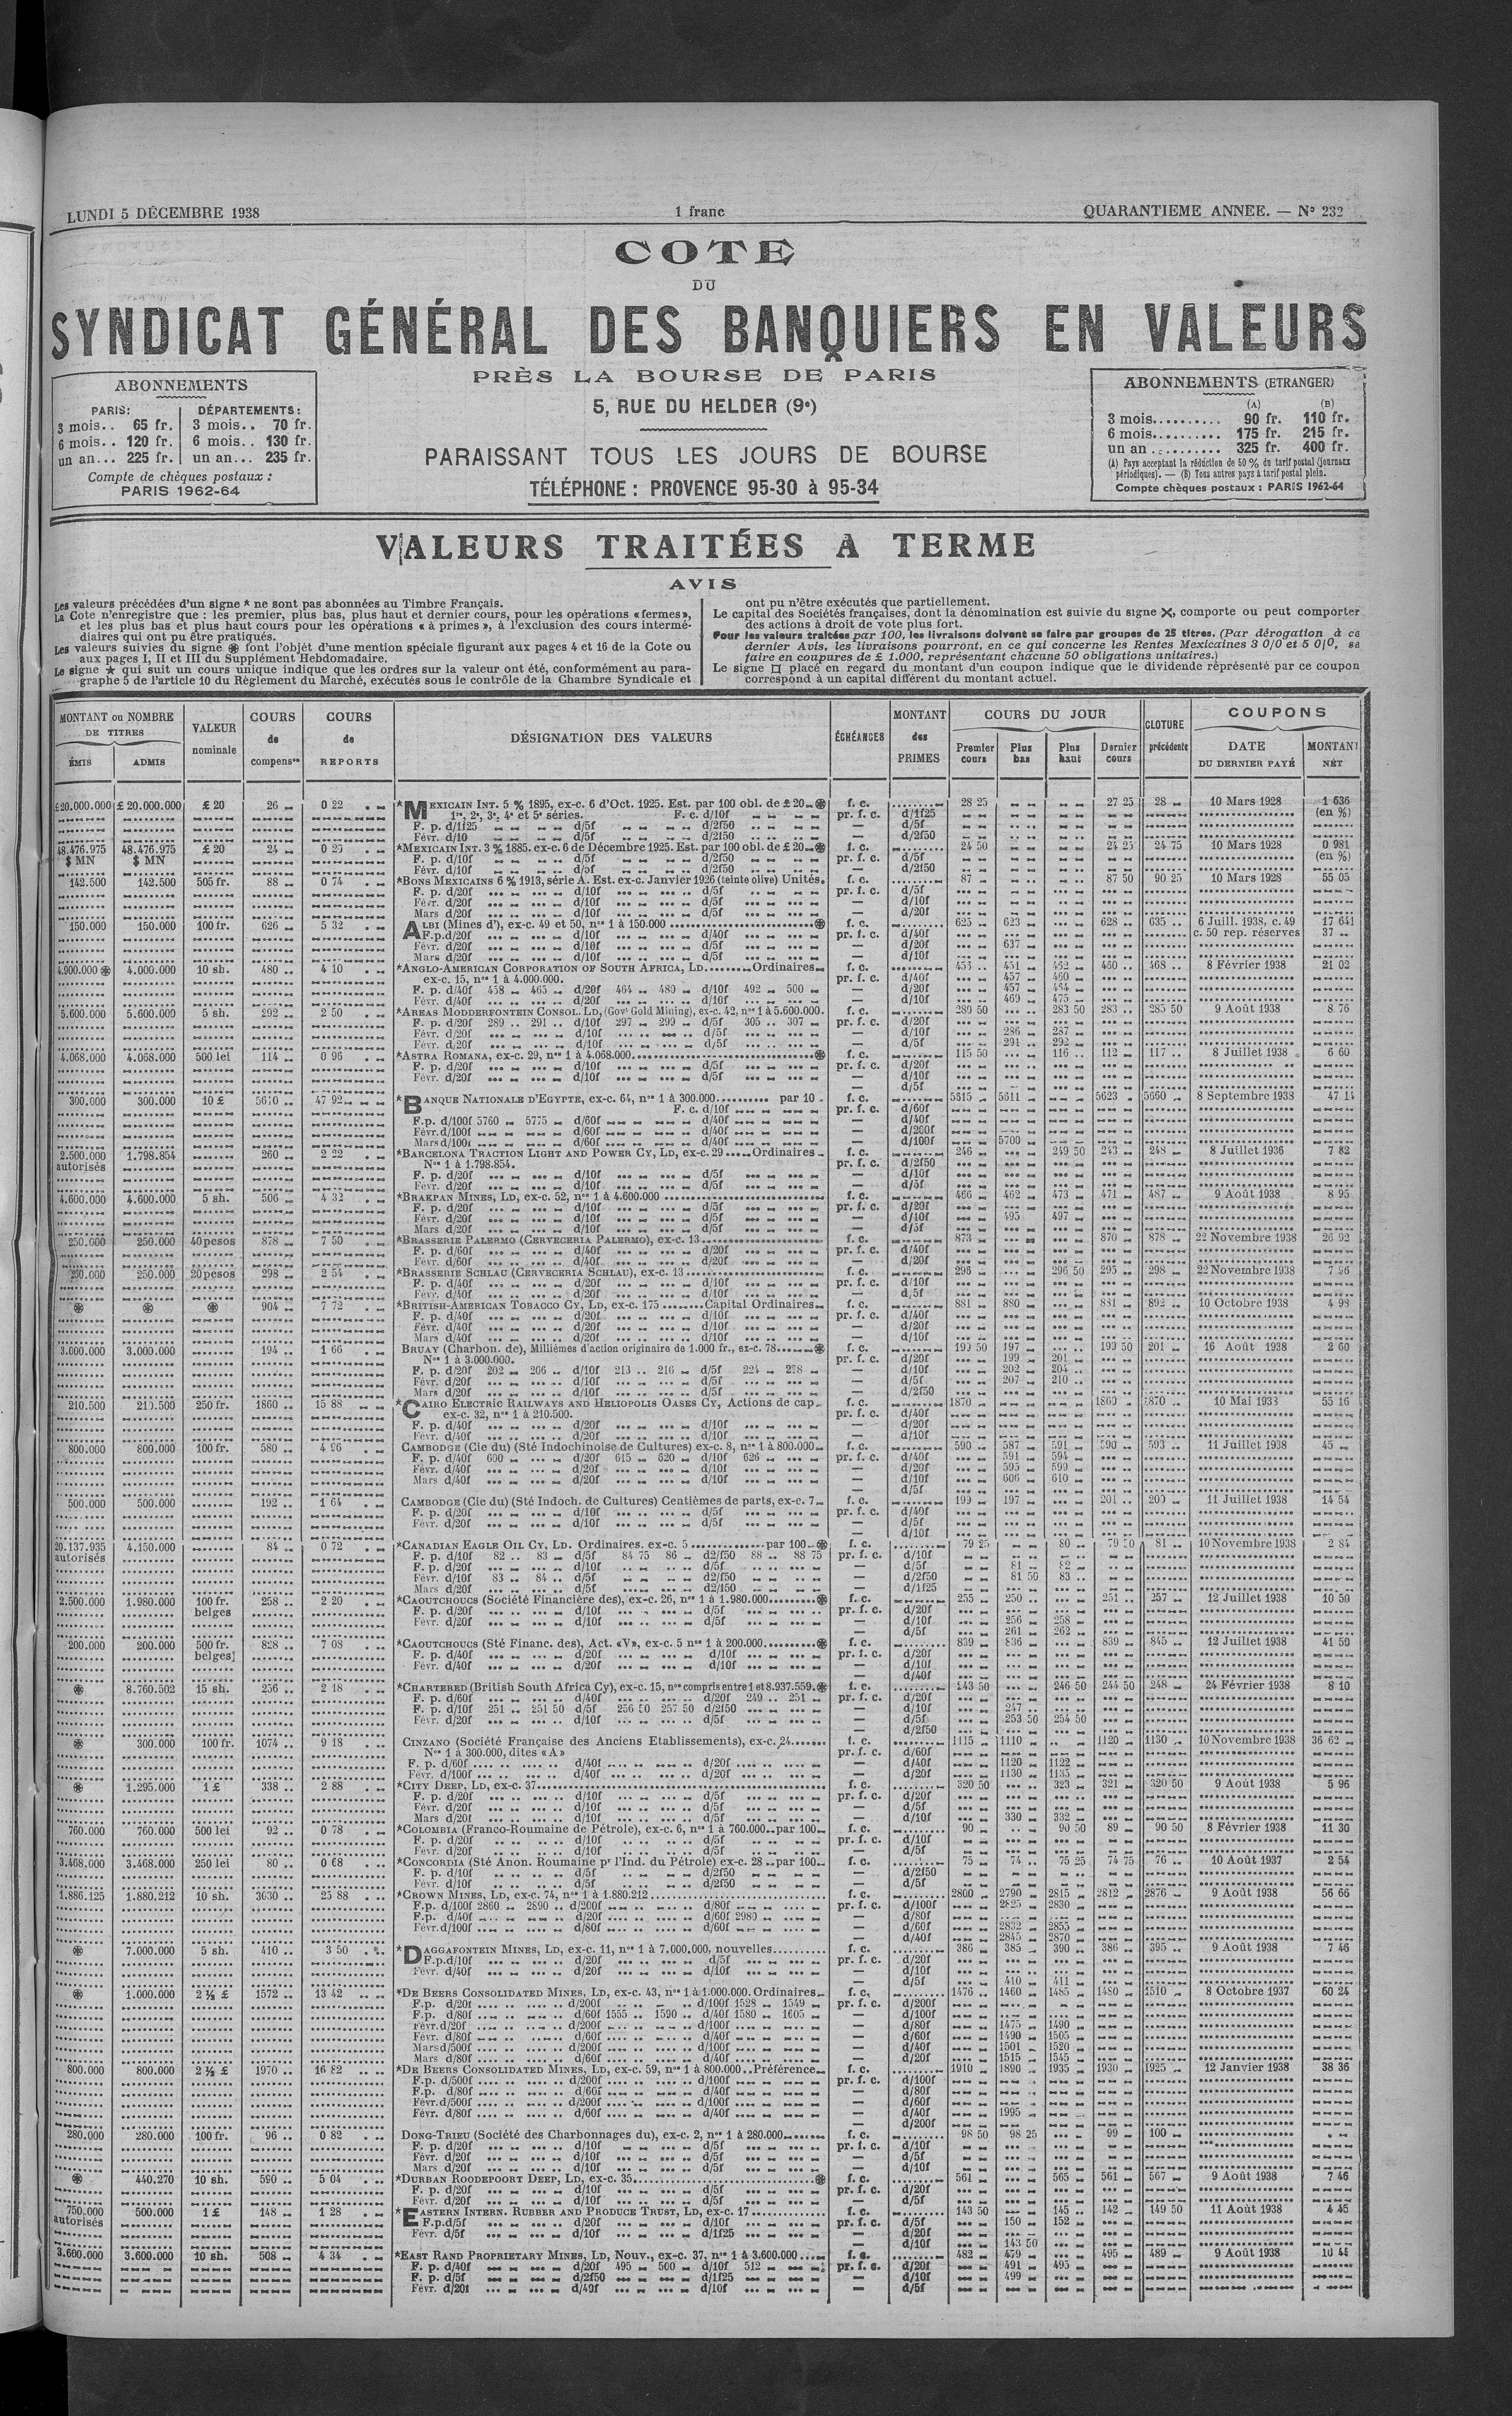 LUNDI 5 DÉCEMBRE 1938
1 franc
QUARANTIEME ANNEE. — Nº 232
COTE
DU
SYNDICAT GÉNÉRAL DES BANQUIERS EN VALEURS
PRÈS LA BOURSE DE PARIS
5, RUE DU HELDER (9e)
PARAISSANT TOUS LES JOURS DE BOURSE
TÉLÉPHONE : PROVENCE 95-30 à 95-34
ABONNEMENTS
PARIS: DÉPARTEMENTS:
3 mois.. 65 fr. 3 mois.. 70 fr.
6 mois.. 120 fr. 6 mois.. 130 fr.
un an... 225 fr. un an... 235 fr.
Compte de chèques postaux :
PARIS 1962-64
ABONNEMENTS (ETRANGER)
(A) (B)
3 mois.......... 90 fr. 110 fr.
6 mois.......... 175 fr. 215 fr.
un an .......... 325 fr. 400 fr.
(A) Pays acceptant la réduction de 50 % du tarif postal (journaux
périodiques). — (B) Tous autres pays à tarif postal plein.
Compte chèques postaux : PARIS 1962-64
VALEURS TRAITÉES A TERME
AVIS
Les valeurs précédées d'un signe * ne sont pas abonnées au Timbre Français.
La Cote n'enregistre que : les premier, plus bas, plus haut et dernier cours, pour les opérations « fermes »,
et les plus bas et plus haut cours pour les opérations « à primes », à l'exclusion des cours intermé-
diaires qui ont pu être pratiqués.
Les valeurs suivies du signe ⊛ font l'objet d'une mention spéciale figurant aux pages 4 et 16 de la Cote ou
aux pages I, II et III du Supplément Hebdomadaire.
Le signe ★ qui suit un cours unique indique que les ordres sur la valeur ont été, conformément au para-
graphe 5 de l'article 10 du Règlement du Marché, exécutés sous le contrôle de la Chambre Syndicale et
ont pu n'être exécutés que partiellement.
Le capital des Sociétés françaises, dont la dénomination est suivie du signe ✕, comporte ou peut comporter
des actions à droit de vote plus fort.
Pour les valeurs traitées par 100, les livraisons doivent se faire par groupes de 25 titres. (Par dérogation à ce
dernier Avis, les livraisons pourront, en ce qui concerne les Rentes Mexicaines 3 0/0 et 5 0/0, se
faire en coupures de £ 1.000, représentant chacune 50 obligations unitaires.)
Le signe □ placé en regard du montant d'un coupon indique que le dividende réprésenté par ce coupon
correspond à un capital différent du montant actuel.
MONTANT ou NOMBRE DE TITRES
ÉMIS ADMIS
VALEUR nominale
COURS de compenson
COURS de REPORTS
DÉSIGNATION DES VALEURS
ÉCHÉANCES
MONTANT des PRIMES
COURS DU JOUR
Premier cours Plus bas Plus haut Dernier cours
CLOTURE précédente
COUPONS
DATE DU DERNIER PAYÉ MONTANT NÉT
£20.000.000 £ 20.000.000 £ 20 26 0 22 *MEXICAIN INT. 5 % 1895, ex-c. 6 d'Oct. 1925. Est. par 100 obl. de £ 20 ⊛ f. c. 28 25 27 25 28 10 Mars 1928 1 636
1re, 2e, 3e, 4e et 5e séries. F. c. d/10f pr. f. c. d/1f25 (en %)
F. p. d/1f25 d/5f d/2f50 — d/5f
Févr. d/10 d/5f d/2f50 — d/2f50
48.476.975 48.476.975 £ 20 24 0 25 *MEXICAIN INT. 3 % 1885. ex-c. 6 de Décembre 1925. Est. par 100 obl. de £ 20 ⊛ f. c. 24 50 24 25 24 75 10 Mars 1928 0 981
$ MN $ MN F. p. d/10f d/5f d/2f50 pr. f. c. d/5f (en %)
Févr. d/10f d/5f d/2f50 — d/2f50
142.500 142.500 505 fr. 88 0 74 *BONS MEXICAINS 6 % 1913, série A. Est. ex-c. Janvier 1926 (teinte olive) Unités f. c. 87 87 50 90 25 10 Mars 1928 55 05
F. p. d/20f d/10f d/5f pr. f. c. d/5f
Févr. d/20f d/10f d/5f — d/10f
Mars d/20f d/10f d/5f — d/20f
150.000 150.000 100 fr. 626 5 32 ALBI (Mines d'), ex-c. 49 et 50, nos 1 à 150.000 ⊛ f. c. 625 623 628 635 6 Juill. 1938, c. 49 17 641
F.p. d/20f d/10f d/40f pr. f. c. d/40f c. 50 rep. réserves 37
Févr. d/20f d/10f d/5f — d/20f 637
Mars d/20f d/10f d/5f — d/10f
4.900.000 ⊛ 4.000.000 10 sh. 480 4 10 *ANGLO-AMERICAN CORPORATION OF SOUTH AFRICA, LD........Ordinaires f. c. 455 451 462 460 468 8 Février 1938 21 02
ex-c. 15, nos 1 à 4.000.000. pr. f. c. d/40f 457 460
F. p. d/40f 458 465 d/20f 464 480 d/10f 492 500 — d/20f 457 464
Févr. d/40f d/20f d/10f — d/10f 469 475
5.600.000 5.600.000 5 sh. 292 2 50 *AREAS MODDERFONTEIN CONSOL. LD, (Govt Gold Mining), ex-c. 42, nos 1 à 5.600.000. f. c. 280 50 283 50 283 285 50 9 Août 1938 8 76
F. p. d/20f 289 291 d/10f 297 299 d/5f 305 307 pr. f. c. d/20f
Févr. d/20f d/10f d/5f — d/10f 286 287
Févr. d/20f d/10f d/5f — d/5f 291 292
4.068.000 4.068.000 500 lei 114 0 96 *ASTRA ROMANA, ex-c. 29, nos 1 à 4.068.000 ⊛ f. c. 115 50 116 112 117 8 Juillet 1938 6 60
F. p. d/20f d/10f d/5f pr. f. c. d/20f
Févr. d/20f d/10f d/5f — d/10f
— d/5f
300.000 300.000 10 £ 5610 47 92 *BANQUE NATIONALE D'EGYPTE, ex-c. 64, nos 1 à 300.000 par 10 f. c. 5515 5611 5623 5660 8 Septembre 1938 47 14
F. c. d/10f pr. f. c. d/60f
F.p. d/100f 5760 5775 d/60f d/40f — d/40f
Févr. d/100f d/60f d/40f — d/200f
Mars d/100f d/60f d/40f — d/100f 5700
2.500.000 1.798.854 260 2 22 *BARCELONA TRACTION LIGHT AND POWER CY, LD, ex-c. 29.....Ordinaires f. c. 246 249 50 243 248 8 Juillet 1936 7 82
autorisés Nos 1 à 1.798.854. pr. f. c. d/2f50
F. p. d/20f d/10f d/5f — d/10f
Févr. d/20f d/10f d/5f — d/5f
4.600.000 4.600.000 5 sh. 506 4 32 *BRAKPAN MINES, LD, ex-c. 52, nos 1 à 4.600.000 f. c. 466 462 473 471 487 9 Août 1938 8 95
F. p. d/20f d/10f d/5f pr. f. c. d/20f
Févr. d/20f d/10f d/5f — d/10f 495 497
Mars d/20f d/10f d/5f — d/5f
250.000 250.000 40 pesos 878 7 50 *BRASSERIE PALERMO (CERVECERIA PALERMO), ex-c. 13 f. c. 873 870 878 22 Novembre 1938 26 92
F. p. d/60f d/40f d/20f pr. f. c. d/40f
Févr. d/60f d/40f d/20f — d/20f
250.000 250.000 20 pesos 298 2 54 *BRASSERIE SCHLAU (CERVECERIA SCHLAU), ex-c. 13 f. c. 296 296 50 295 298 22 Novembre 1938 7 96
F. p. d/40f d/20f d/10f pr. f. c. d/10f
Févr. d/40f d/20f d/10f — d/5f
⊛ ⊛ ⊛ 904 7 72 *BRITISH-AMERICAN TOBACCO CY, LD, ex-c. 175........Capital Ordinaires f. c. 881 880 881 892 10 Octobre 1938 4 98
F. p. d/40f d/20f d/10f pr. f. c. d/40f
Févr. d/40f d/20f d/10f — d/20f
Mars d/40f d/20f d/10f — d/10f
3.000.000 3.000.000 194 1 66 BRUAY (Charbon. de), Millièmes d'action originaire de 1.000 fr., ex-c. 78 ⊛ f. c. 199 50 197 199 50 201 16 Août 1938 2 60
Nos 1 à 3.000.000. pr. f. c. d/20f 199 201
F. p. d/20f 202 206 d/10f 213 216 d/5f 224 228 — d/10f 202 204
Févr. d/20f d/10f d/5f — d/5f 207 210
Mars d/20f d/10f d/5f — d/2f50
210.500 210.500 250 fr. 1860 15 88 *CAIRO ELECTRIC RAILWAYS AND HELIOPOLIS OASES CY, Actions de cap. f. c. 1870 1860 1870 10 Mai 1938 55 16
ex-c. 32, nos 1 à 210.500. pr. f. c. d/40f
F. p. d/40f d/20f d/10f — d/20f
Févr. d/40f d/20f d/10f — d/10f
800.000 800.000 100 fr. 580 4 96 CAMBODGE (Cie du) (Sté Indochinoise de Cultures) ex-c. 8, nos 1 à 800.000 f. c. 590 587 591 590 593 11 Juillet 1938 45
F. p. d/40f 600 d/20f 615 620 d/10f 626 pr. f. c. d/40f 591 594
Févr. d/40f d/20f d/10f — d/20f 595 599
Mars d/40f d/20f d/10f — d/10f 606 610
— d/5f
500.000 500.000 192 1 64 CAMBODGE (Cie du) (Sté Indoch. de Cultures) Centièmes de parts, ex-c. 7 f. c. 199 197 201 200 11 Juillet 1938 14 54
F. p. d/20f d/10f d/5f pr. f. c. d/40f
Févr. d/20f d/10f d/5f — d/5f
— d/10f
20.137.935 4.150.000 84 0 72 *CANADIAN EAGLE OIL CY, LD. Ordinaires. ex-c. 5 par 100 ⊛ f. c. 79 25 80 79 50 81 10 Novembre 1938 2 84
autorisés F. p. d/10f 82 83 d/5f 84 75 86 d2/f50 88 88 75 pr. f. c. d/10f
F. p. d/20f d/10f d/5f — d/5f 81 82
Févr. d/10f 83 84 d/5f d2/f50 — d/2f50 81 50 83
Mars d/20f d/5f d2/f50 — d/1f25
2.500.000 1.980.000 100 fr. 258 2 20 *CAOUTCHOUCS (Société Financière des), ex-c. 26, nos 1 à 1.980.000 ⊛ f. c. 255 250 251 257 12 Juillet 1938 10 50
belges F. p. d/20f d/10f d/5f pr. f. c. d/20f
Févr. d/20f d/10f d/5f — d/10f 256 258
— d/5f 261 262
200.000 200.000 500 fr. 828 7 08 *CAOUTCHOUCS (Sté Financ. des), Act. «V», ex-c. 5 nos 1 à 200.000 ⊛ f. c. 839 836 839 845 12 Juillet 1938 41 50
belges F. p. d/40f d/20f d/10f pr. f. c. d/20f
Févr. d/40f d/20f d/10f — d/10f
— d/40f
⊛ 8.760.502 15 sh. 256 2 18 *CHARTERED (British South Africa Cy), ex-c. 15, nos compris entre 1 et 8.937.559. ⊛ f. c. 243 50 246 50 244 50 248 24 Février 1938 8 10
F. p. d/60f d/40f d/20f 249 251 pr. f. c. d/20f
F. p. d/10f 251 251 50 d/5f 256 50 257 50 d/2f50 — d/10f 247
Févr. d/20f d/10f d/5f — d/5f 253 50 254 50
— d/2f50
⊛ 300.000 100 fr. 1074 9 18 CINZANO (Société Française des Anciens Etablissements), ex-c. 24 f. c. 1115 1110 1120 1130 10 Novembre 1938 36 62
Nos 1 à 300.000, dites «A» pr. f. c. d/60f
F. p. d/60f d/40f d/20f — d/40f 1120 1122
Févr. d/100f d/40f d/20f — d/20f 1130 1135
⊛ 1.295.000 1 £ 338 2 88 *CITY DEEP, LD, ex-c. 37 f. c. 320 50 323 321 320 50 9 Août 1938 5 96
F. p. d/20f d/10f d/5f pr. f. c. d/20f
Févr. d/20f d/10f d/5f — d/5f
Mars d/20f d/10f d/5f — d/10f 330 332
760.000 760.000 500 lei 92 0 78 *COLOMBIA (Franco-Roumaine de Pétrole), ex-c. 6, nos 1 à 760.000 par 100 f. c. 90 90 50 89 90 50 8 Février 1938 11 30
F. p. d/20f d/10f d/5f pr. f. c. d/10f
Févr. d/20f d/10f d/5f — d/5f
3.468.000 3.468.000 250 lei 80 0 68 *CONCORDIA (Sté Anon. Roumaine pr l'Ind. du Pétrole) ex-c. 28 par 100 f. c. 75 74 75 25 74 75 76 10 Août 1937 2 54
F. p. d/10f d/5f d/2f50 — d/2f50
Févr. d/10f d/5f d/2f50 — d/5f
1.886.125 1.880.212 10 sh. 3030 25 88 *CROWN MINES, LD, ex-c. 74, nos 1 à 1.880.212 f. c. 2800 2790 2815 2812 2876 9 Août 1938 56 66
F.p. d/100f 2860 2890 d/200f d/80f pr. f. c. d/100f 2825 2830
F.p. d/40f d/20f d/60f 2989 — d/80f
Févr. d/100f d/80f d/60f — d/60f 2832 2855
— d/40f 2845 2870
⊛ 7.000.000 5 sh. 410 3 50 *DAGGAFONTEIN MINES, LD, ex-c. 11, nos 1 à 7.000.000, nouvelles f. c. 386 385 390 386 395 9 Août 1938 7 46
F.p. d/10f d/20f d/5f pr. f. c. d/20f
Févr. d/40f d/20f d/10f — d/10f
— d/5f 410 411
⊛ 1.000.000 2 ½ £ 1572 13 42 *DE BEERS CONSOLIDATED MINES, LD, ex-c. 43, nos 1 à 1.000.000. Ordinaires f. c. 1476 1460 1485 1480 1510 8 Octobre 1937 60 24
F.p. d/20f d/200f d/100f 1528 1549 pr. f. c. d/200f
F.p. d/80f d/60f 1555 1590 d/40f 1580 1605 — d/100f
Févr. d/20f d/200f d/100f — d/80f 1475 1490
Févr. d/80f d/60f d/40f — d/60f 1490 1505
Mars d/500f d/200f d/100f — d/40f 1501 1520
Mars d/80f d/60f d/40f — d/20f 1515 1545
800.000 800.000 2 ½ £ 1970 16 82 *DE BEERS CONSOLIDATED MINES, LD, ex-c. 59, nos 1 à 800.000..Préférence f. c. 1910 1890 1935 1930 1925 12 Janvier 1938 38 36
F.p. d/500f d/200f d/100f pr. f. c. d/100f
F.p. d/80f d/60f d/40f — d/80f
Févr. d/500f d/200f d/100f — d/60f
Févr. d/80f d/60f d/40f — d/40f 1995
— d/200f
280.000 280.000 100 fr. 96 0 82 DONG-TRIEU (Société des Charbonnages du), ex-c. 2, nos 1 à 280.000 f. c. 98 50 98 25 99 100
F. p. d/20f d/10f d/5f pr. f. c. d/10f
Févr. d/20f d/10f d/5f — d/5f
Mars d/20f d/10f d/5f — d/10f
⊛ 440.270 10 sh. 590 5 04 *DURBAN ROODEPOORT DEEP, LD, ex-c. 35 ⊛ f. c. 561 565 561 567 9 Août 1938 7 46
F. p. d/20f d/10f d/5f pr. f. c. d/20f
Févr. d/20f d/10f d/5f — d/5f
750.000 500.000 1 £ 148 1 28 *EASTERN INTERN. RUBBER AND PRODUCE TRUST, LD, ex-c. 17 f. c. 143 50 145 142 149 50 11 Août 1938 4 45
autorisés F.p. d/5f d/20f d/10f pr. f. c. d/5f 150 152
Févr. d/5f d/10f d/1f25 — d/20f
— d/10f 143 50
3.600.000 3.600.000 10 sh. 508 4 34 *EAST RAND PROPRIETARY MINES, LD, Nouv., ex-c. 37, nos 1 à 3.600.000 f. c. 482 479 495 489 9 Août 1938 10 44
F. p. d/40f d/20f 495 500 d/10f 512 pr. f. c. d/20f 491 495
F. p. d/5f d/2f50 d/1f25 — d/10f 499
Févr. d/20f d/40f d/10f — d/5f